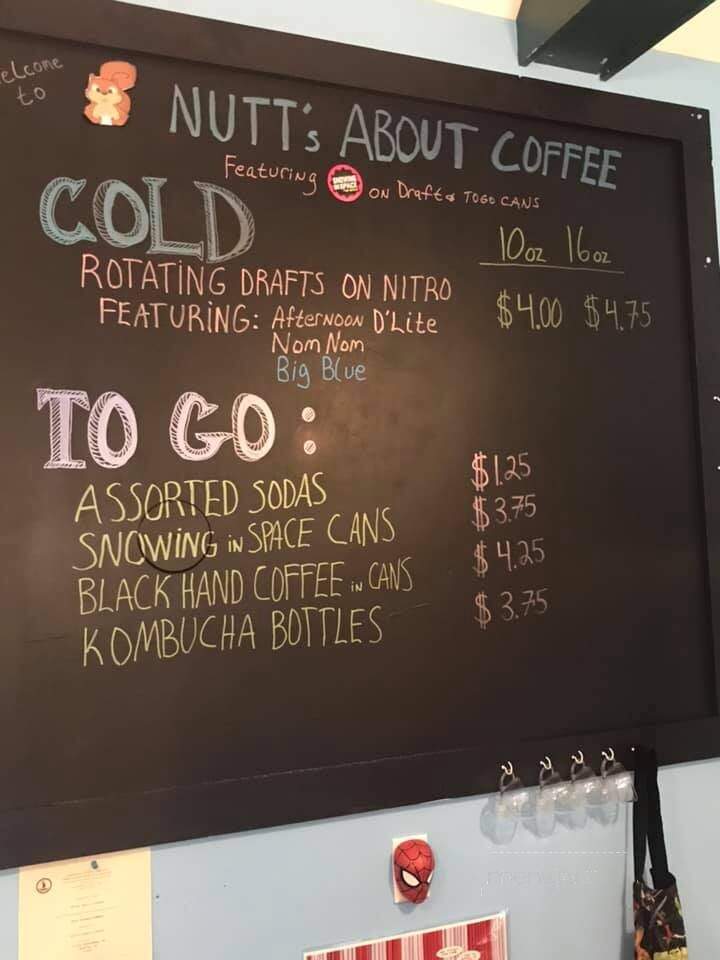 elcome
to
NUTT's ABOUT COFFEE
Featuring SNOWING IN SPACE ON Draft & TOGO CANS
COLD
10oz 16oz
ROTATING DRAFTS ON NITRO
FEATURING: Afternoon D'Lite $4.00 $4.75
Nom Nom
Big Blue
TO GO :
ASSORTED SODAS $1.25
SNOWING IN SPACE CANS $3.75
BLACK HAND COFFEE IN CANS $4.25
KOMBUCHA BOTTLES $3.75